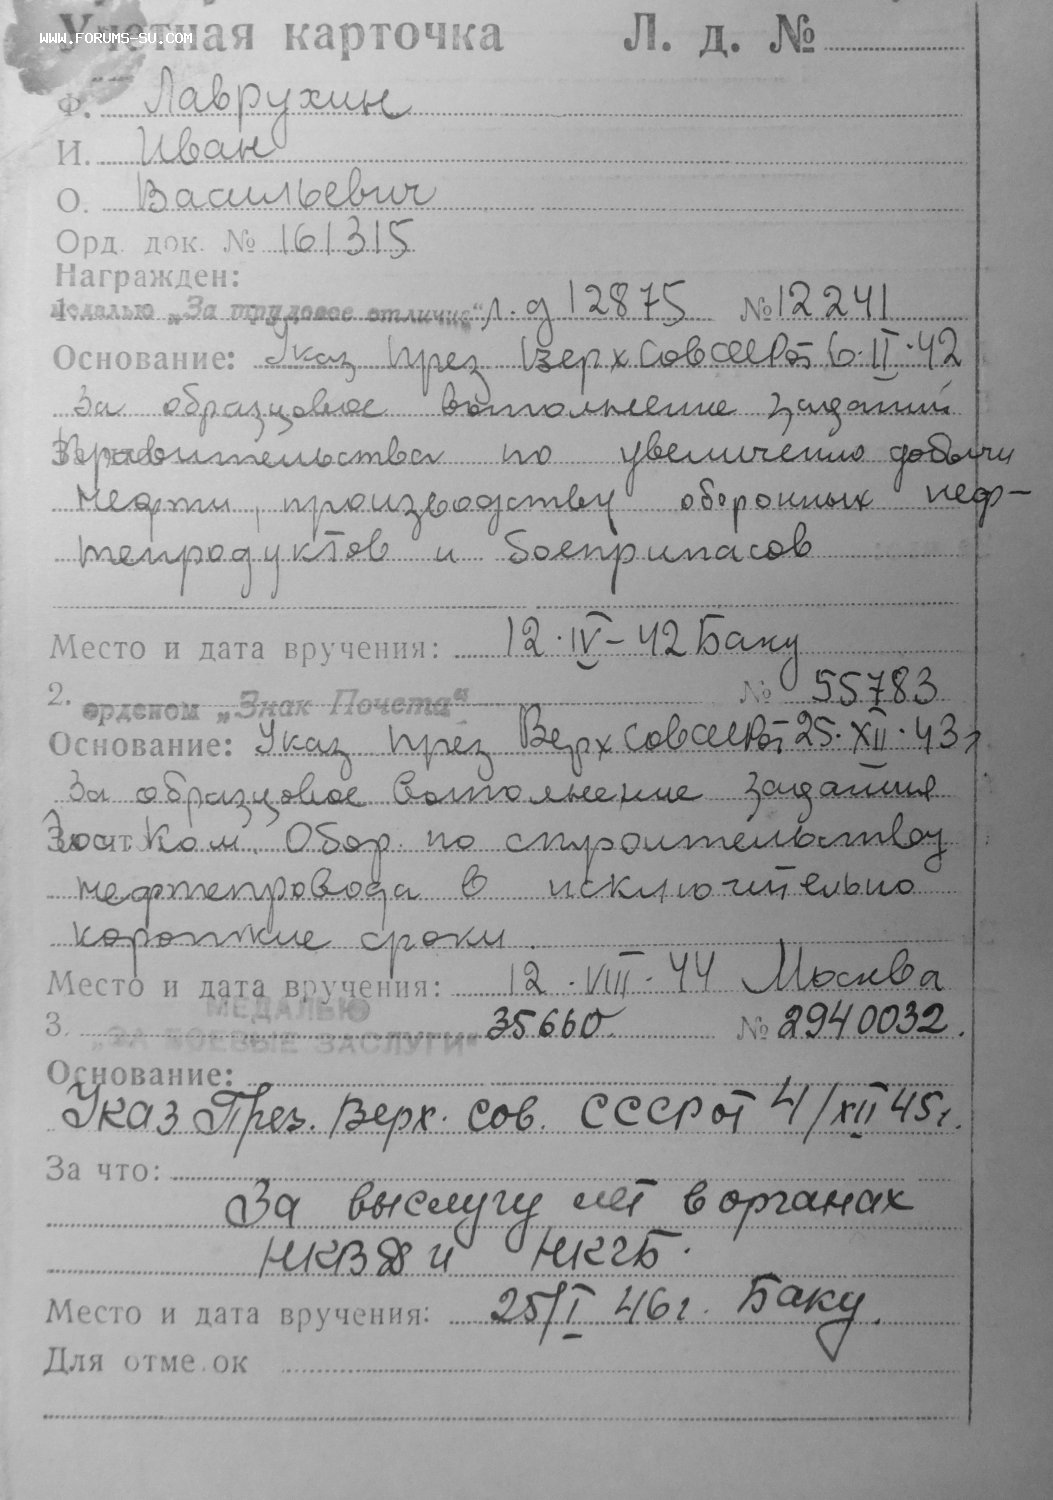 www.forums-su.com
Учетная карточка Л. д. №
Ф. Лаврухин
И. Иван
О. Васильевич
Орд. док. № 161315
Награжден:
медалью „За трудовое отличие“ л. д 12875 № 12241
Основание: Указ През Верх Сов СССР от 6·II·42
За образцовое выполнение заданий
Правительства по увеличению добычи
нефти, производству оборонных неф-
тепродуктов и боеприпасов
Место и дата вручения: 12·IV-42 Баку
2. орденом „Знак Почета“ № 55783
Основание: Указ През Верх Сов СССР от 25·XII·43г
За образцовое выполнение задания
Гос. Ком. Обор. по строительству
нефтепровода в исключительно
короткие сроки.
Место и дата вручения: 12·VIII·44 Москва
МЕДАЛЬЮ
3. „ЗА БОЕВЫЕ ЗАСЛУГИ“ 35660. № 2940032.
Основание:
Указ През. Верх. Сов. СССР от 4/XII 45г.
За что:
За выслугу лет в органах
НКВД и НКГБ.
Место и дата вручения: 25/I 46г. Баку.
Для отме.ок